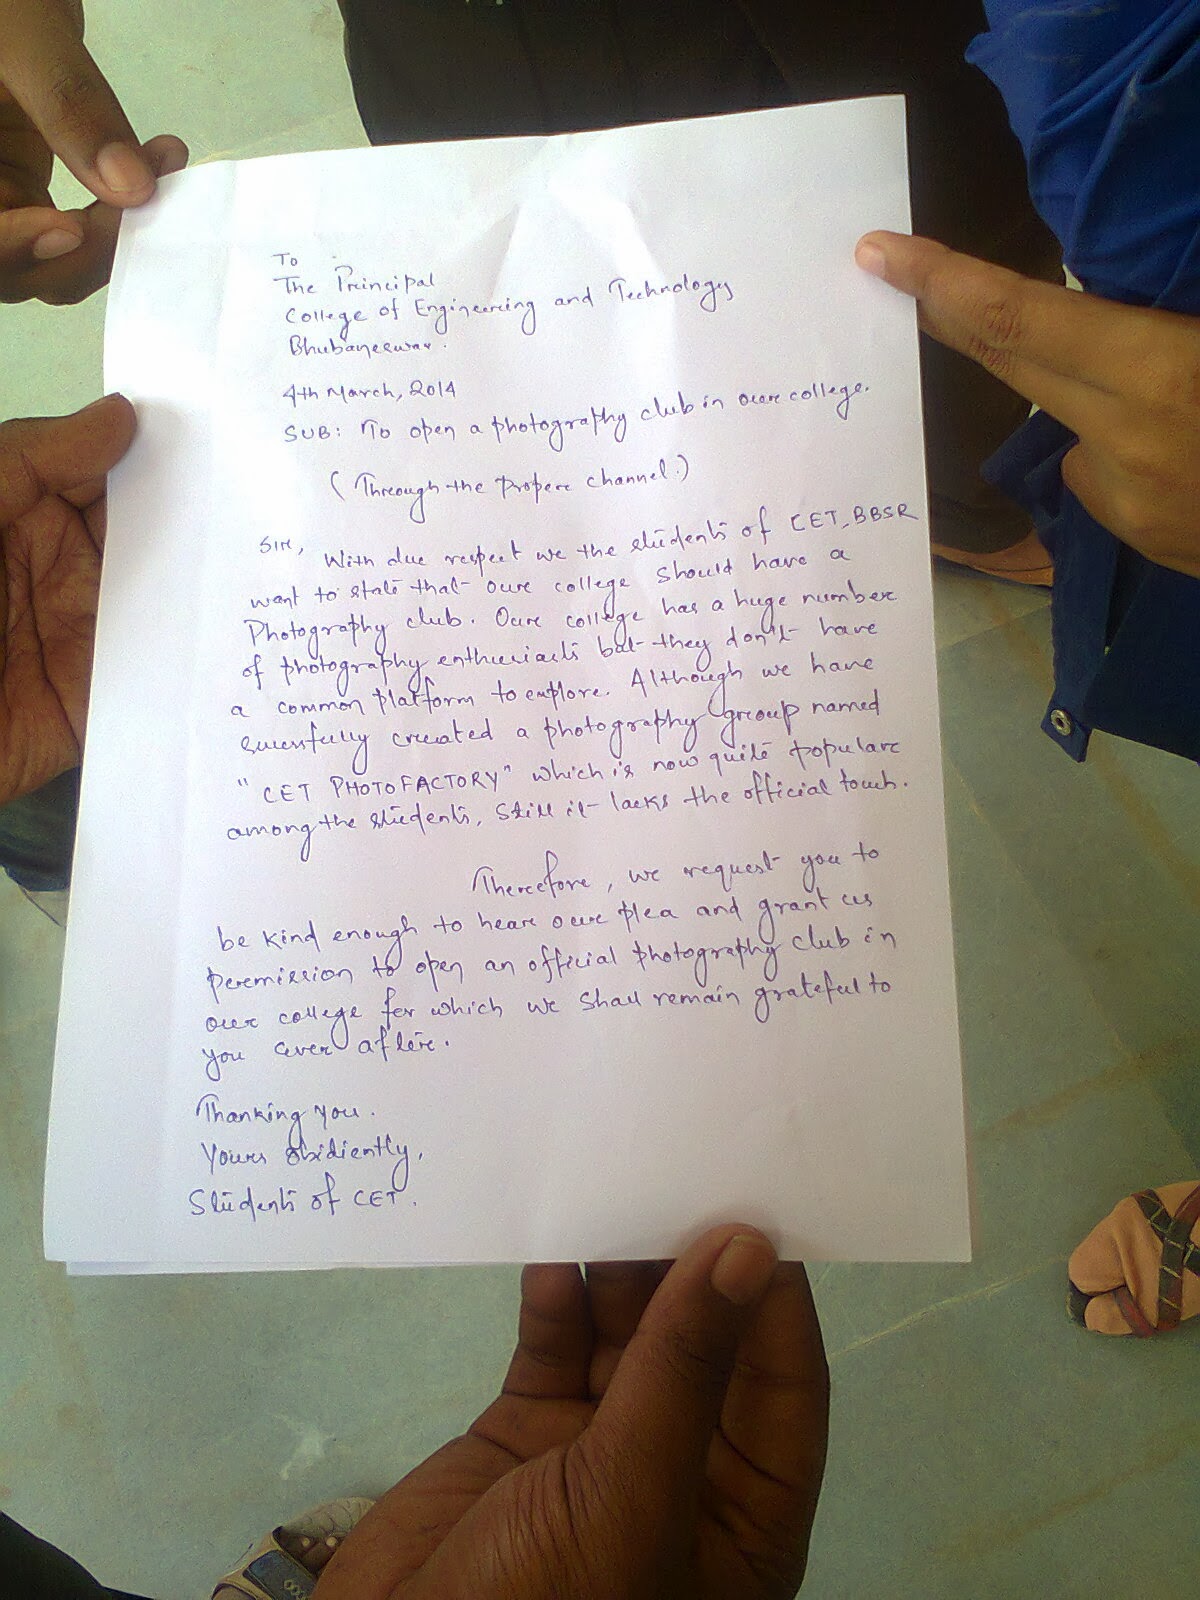 To
The Principal
College of Engineering and Technology
Bhubaneswar.
4th March, 2014
SUB: To open a photography club in our college.
(Through the proper channel.)
Sir, With due respect we the students of CET, BBSR
want to state that our college should have a
Photography club. Our college has a huge number
of photography enthusiasts but they don't have
a common platform to explore. Although we have
sucessfully created a photography group named
"CET PHOTOFACTORY" which is now quite popular
among the students, still it lacks the official touch.
Therefore, we request you to
be kind enough to hear our plea and grant us
permission to open an official photography club in
our college for which we shall remain grateful to
you ever after.
Thanking you.
Yours obidiently,
Students of CET.